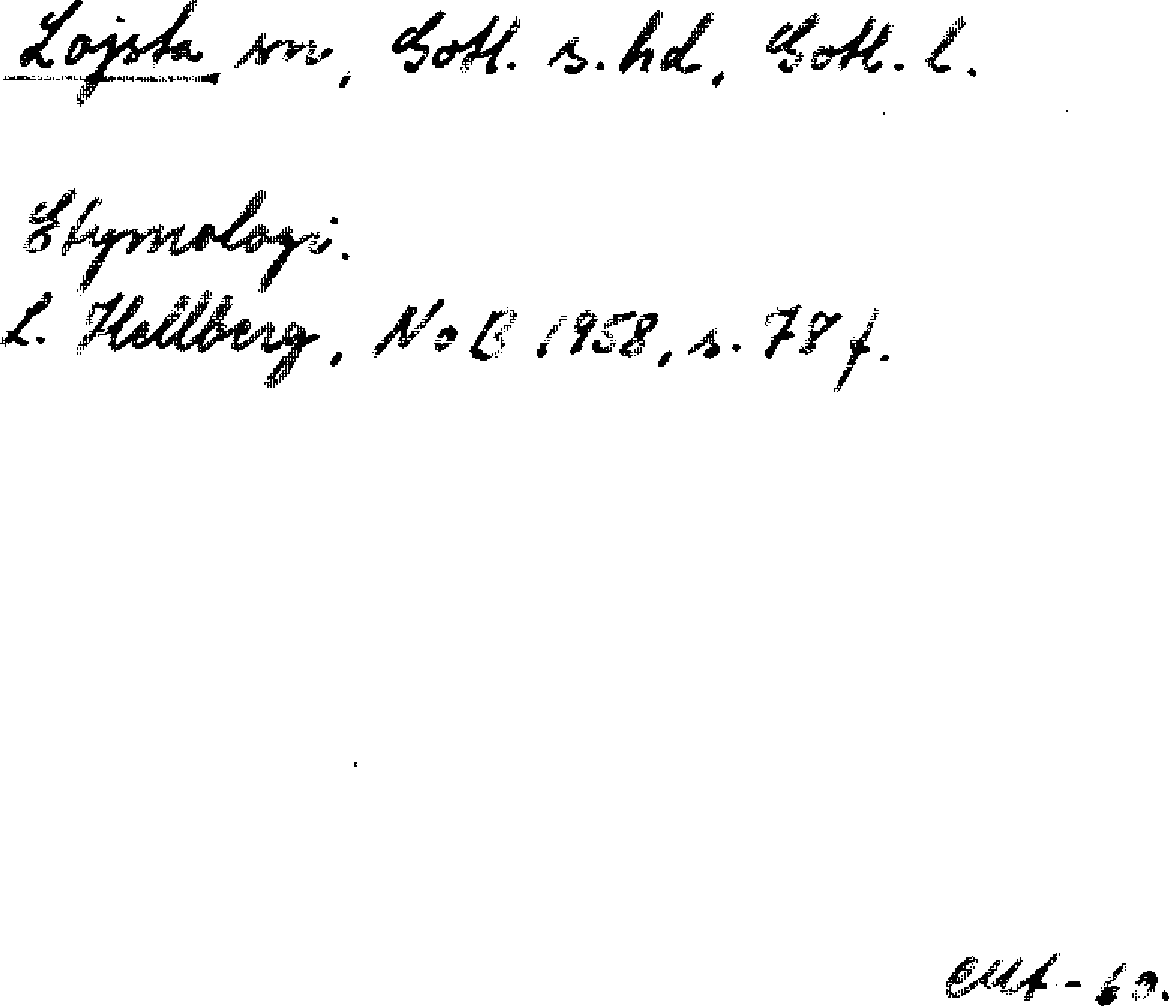 Lojsta sn, Gotl. s. hd, Gotl. l.
Etymologi.
L. Hellberg, NoB 1958, s. 78 f.